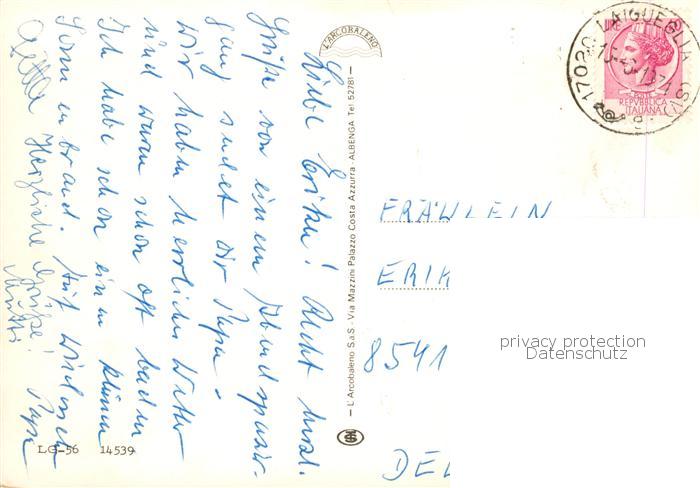 Liebe Erika! Recht herzl.
Grüße von einem Abendspazier-
gang sendet dir Papa.
Wir haben herrliches Wetter
und waren schon oft baden
Ich habe schon einen kleinen
Sonnenbrand. Auf Wiedersehen
Papa
Herzliche Grüße!
Mutti
L'ARCOBALENO
— L'Arcobaleno S.a.S - Via Mazzini Palazzo Costa Azzurra - ALBENGA Tel 52781 —
LG-56 14539
17020 LAIGUEGLIA (SV)
POSTE
REPVBBLICA
ITALIANA
FRÄULEIN
ERIK
8541
DE
privacy protection
Datenschutz